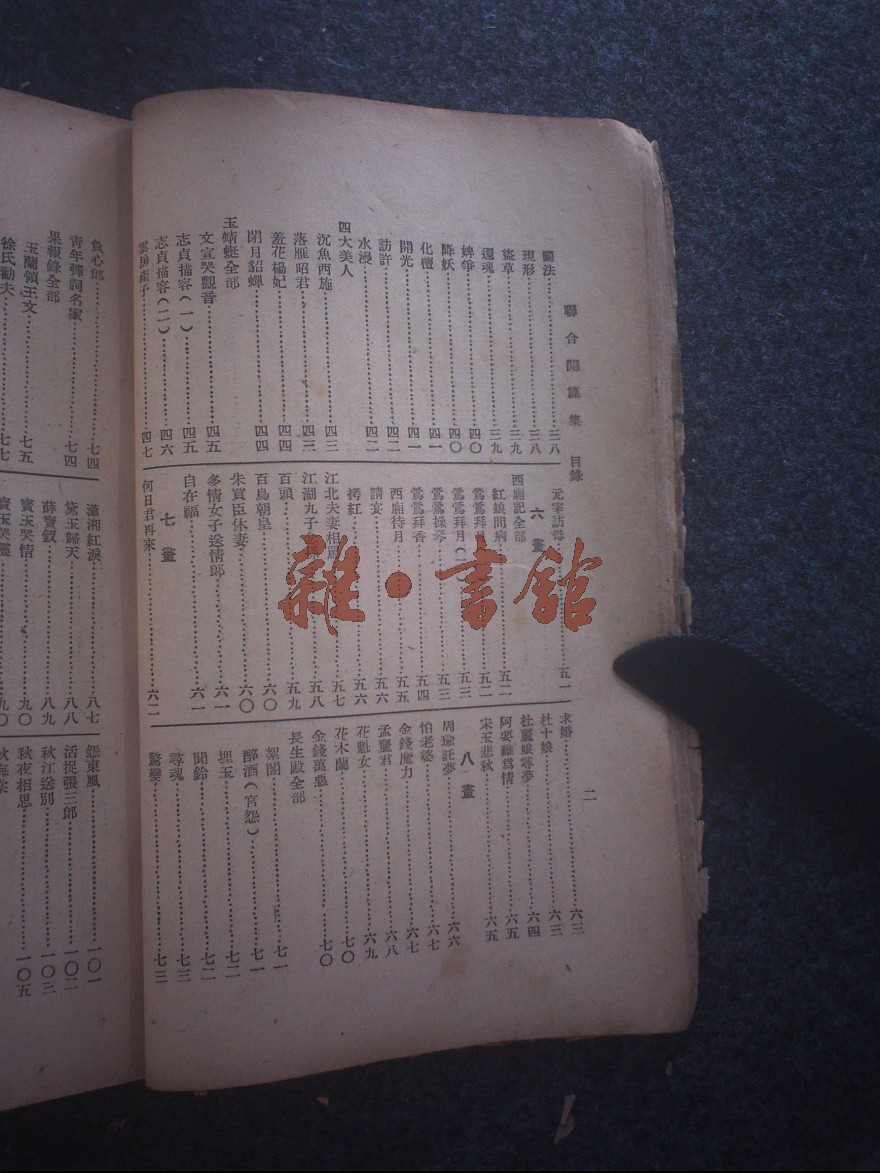 聯合開篇集 目錄
二
鬬法……三八
現形……三八
盜草……三九
還魂……三九
婢爭……四〇
降妖……四〇
化檀……四一
開光……四一
訪許……四二
水漫……四二
四大美人
沉魚西施……四三
落雁昭君……四三
羞花楊妃……四四
閉月貂蟬……四四
玉蜻蜓全部
文宣哭觀音……四五
志貞描容(一)……四五
志貞描容(二)……四六
雲房產子……四七
元宰詰母……五一
六畫
西廂記全部
紅娘問病……五二
鶯鶯拜月……五二
鶯鶯拜月(二)……五三
鶯鶯操琴……五三
鶯鶯拜香……五四
西廂待月……五五
請宴……五六
拷紅……五六
江北夫妻相罵……五七
江湖九子……五八
百頭……五九
百鳥朝皇……六〇
朱買臣休妻……六〇
多情女子送情郎……六一
自在福……六一
七畫
何日君再來……六二
求婚……六三
杜十娘……六三
杜麗娘尋夢……六四
阿要難為情……六五
宋玉悲秋……六五
八畫
周瑜託夢……六六
怕老婆……六七
金錢魔力……六七
孟麗君……六八
花魁女……六九
花木蘭……七〇
金錢萬惡……七〇
長生殿全部
絮閣……七一
醉酒(宮怨)……七一
埋玉……七二
聞鈴……七二
尋魂……七三
驚變……七三
負心郎……七四
青年彈詞名家……七四
果報錄全部
玉蘭領王文……七五
徐氏勸夫……七七
瀟湘紅淚……八七
黛玉歸天……八八
薛寶釵……八九
寶玉哭情……九〇
寶玉哭靈……九〇
怨東風……一〇一
活捉張三郎……一〇二
秋江送別……一〇三
秋夜相思……一〇五
秋海棠
雜·書館